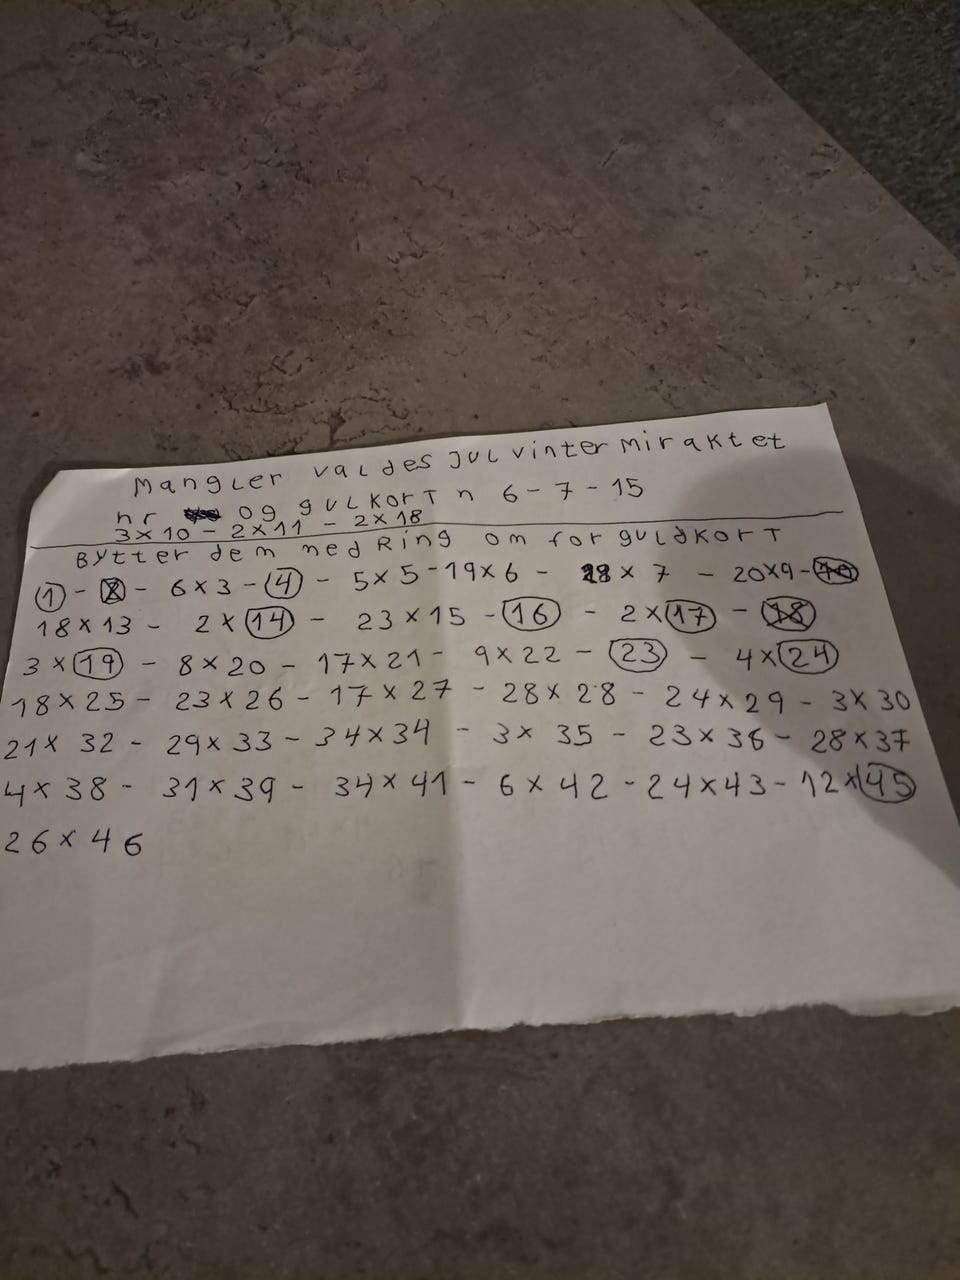 Mangler valdes jul vinter miraklet
nr og gulkort n 6-7-15
3x10 - 2x11 - 2x18
Bytter dem med Ring om for guldkort
1 - 2 - 6x3 - 4 - 5x5 - 19x6 - 28x7 - 20x9 - 10
18x13 - 2x14 - 23x15 - 16 - 2x17 - 18
3x19 - 8x20 - 17x21 - 9x22 - 23 - 4x24
18x25 - 23x26 - 17x27 - 28x28 - 24x29 - 3x30
21x32 - 29x33 - 34x34 - 3x35 - 23x36 - 28x37
4x38 - 31x39 - 34x41 - 6x42 - 24x43 - 12x45
26x46